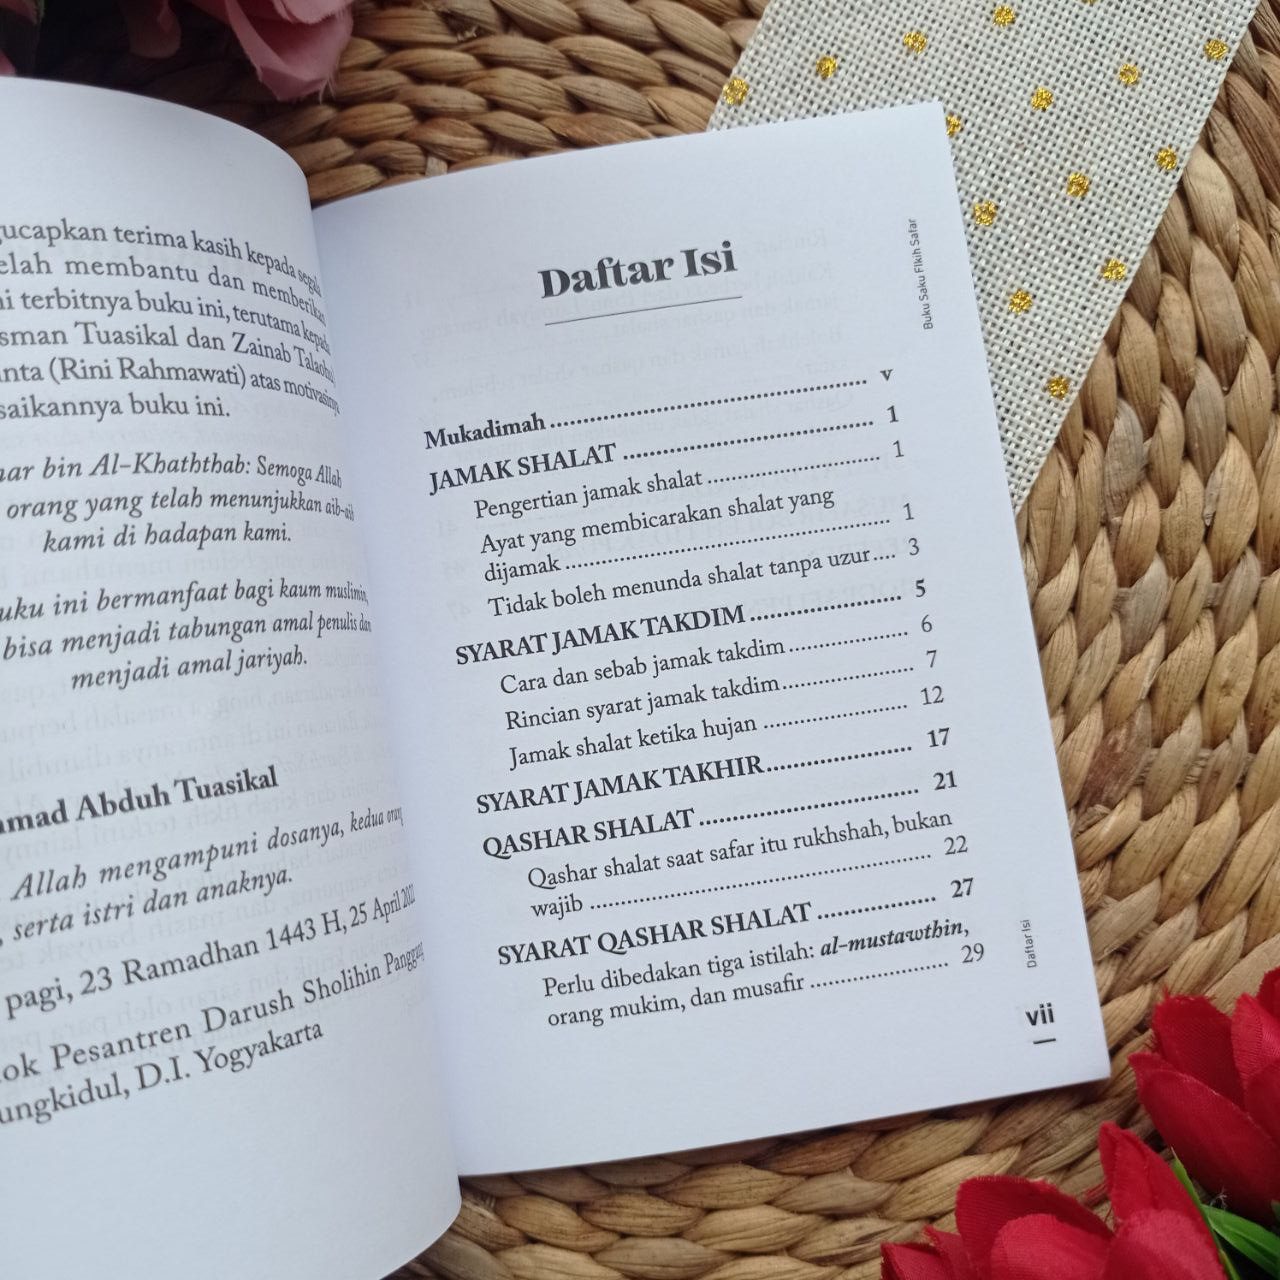 ucapkan terima kasih kepada
elah membantu dan memberikan
terbitnya buku ini, terutama kepada
sman Tuasikal dan Zainab
nta (Rini Rahmawati) atas motivasinya
saikannya buku ini.
bin Al-Khaththab: Semoga Allah
orang yang telah menunjukkan aib-aib
kami di hadapan kami.
uku ini bermanfaat bagi kaum muslimin,
bisa menjadi tabungan amal penulis dan
menjadi amal jariyah.
mad Abduh Tuasikal
Allah mengampuni dosanya, kedua orang
serta istri dan anaknya.
pagi, 23 Ramadhan 1443 H, 25 April
ok Pesantren Darush Sholihin Panggang
ungkidul, D.I. Yogyakarta
Daftar Isi
Mukadimah .......... v
JAMAK SHALAT .......... 1
Pengertian jamak shalat .......... 1
Ayat yang membicarakan shalat yang
dijamak .......... 1
Tidak boleh menunda shalat tanpa uzur .... 3
SYARAT JAMAK TAKDIM .......... 5
Cara dan sebab jamak takdim .......... 6
Rincian syarat jamak takdim .......... 7
Jamak shalat ketika hujan .......... 12
SYARAT JAMAK TAKHIR .......... 17
QASHAR SHALAT .......... 21
Qashar shalat saat safar itu rukhshah, bukan
wajib .......... 22
SYARAT QASHAR SHALAT .......... 27
Perlu dibedakan tiga istilah: al-mustawthin,
orang mukim, dan musafir .......... 29
Buku Saku Fikih Safar
Daftar Isi
vii